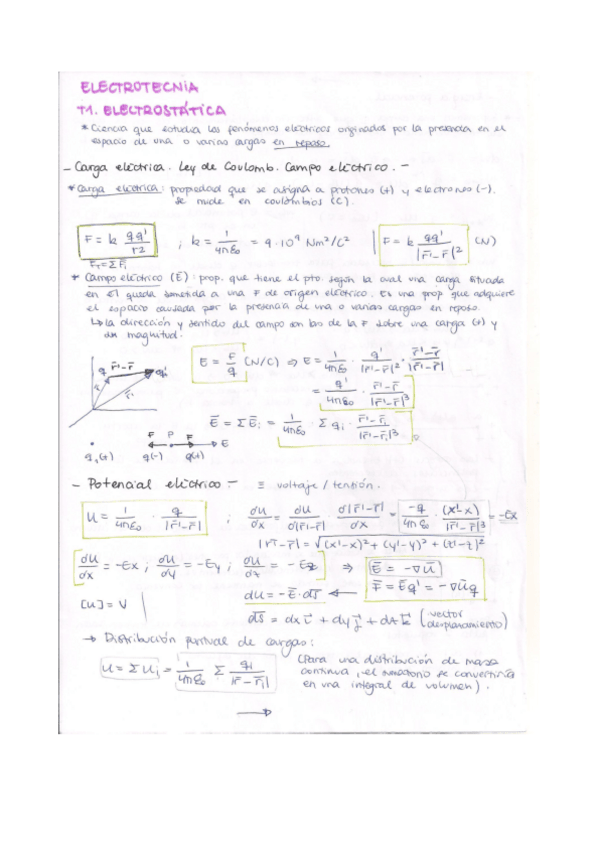 ELECTROTECNIA
T1. ELECTROSTÁTICA
* Ciencia que estudia los fenómenos eléctricos originados por la presencia en el
espacio de una o varias cargas en reposo.
- Carga eléctrica. Ley de Coulomb. Campo eléctrico. -
* Carga eléctrica: propiedad que se asigna a protones (+) y electrones (-).
Se mide en coulombios (C).
F = k qq'/r² ; k = 1/4πε₀ = 9·10⁹ Nm²/C² | F = k qq'/|r̄'-r̄|² (N)
F_T = ΣF̄i
* Campo eléctrico (E): prop. que tiene el pto. según la cual una carga situada
en él queda sometida a una F de origen eléctrico. Es una prop. que adquiere
el espacio causada por la presencia de una o varias cargas en reposo.
↳ la dirección y sentido del campo son las de la F sobre una carga (+) y
magnitud.
E = F/q (N/C) ⇒ E = 1/4πε₀ · q'/|r̄'-r̄|² · r̄'-r̄/|r̄'-r̄|
= q'/4πε₀ · r̄'-r̄/|r̄'-r̄|³
r̄'-r̄
Ē = ΣĒi = 1/4πε₀ · Σqi · r̄'-r̄i/|r̄'-r̄i|³
F P F E
q₁(+) q(-) q(+)
- Potencial eléctrico - ≡ voltaje / tensión.
U = 1/4πε₀ · q/|r̄'-r̄| ; dU/dx = dU/d|r̄'-r̄| · d|r̄'-r̄|/dx = -q/4πε₀ · (x'-x)/|r̄'-r̄|³ = -Ex
|r̄'-r̄| = √(x'-x)²+(y'-y)²+(z'-z)²
dU/dx = -Ex ; dU/dy = -Ey ; dU/dz = -Ez ⇒ Ē = -∇Ū
F̄ = Ēq' = -∇Ūq
dU = -Ē·ds̄ ←
[U] = V
ds̄ = dx ī + dy j̄ + dz k̄ (vector desplazamiento)
→ Distribución puntual de cargas:
U = ΣUi = 1/4πε₀ Σ qi/|r̄-r̄i|
(Para una distribución de masa
continua, el sumatorio se convertiría
en una integral de volumen).
→